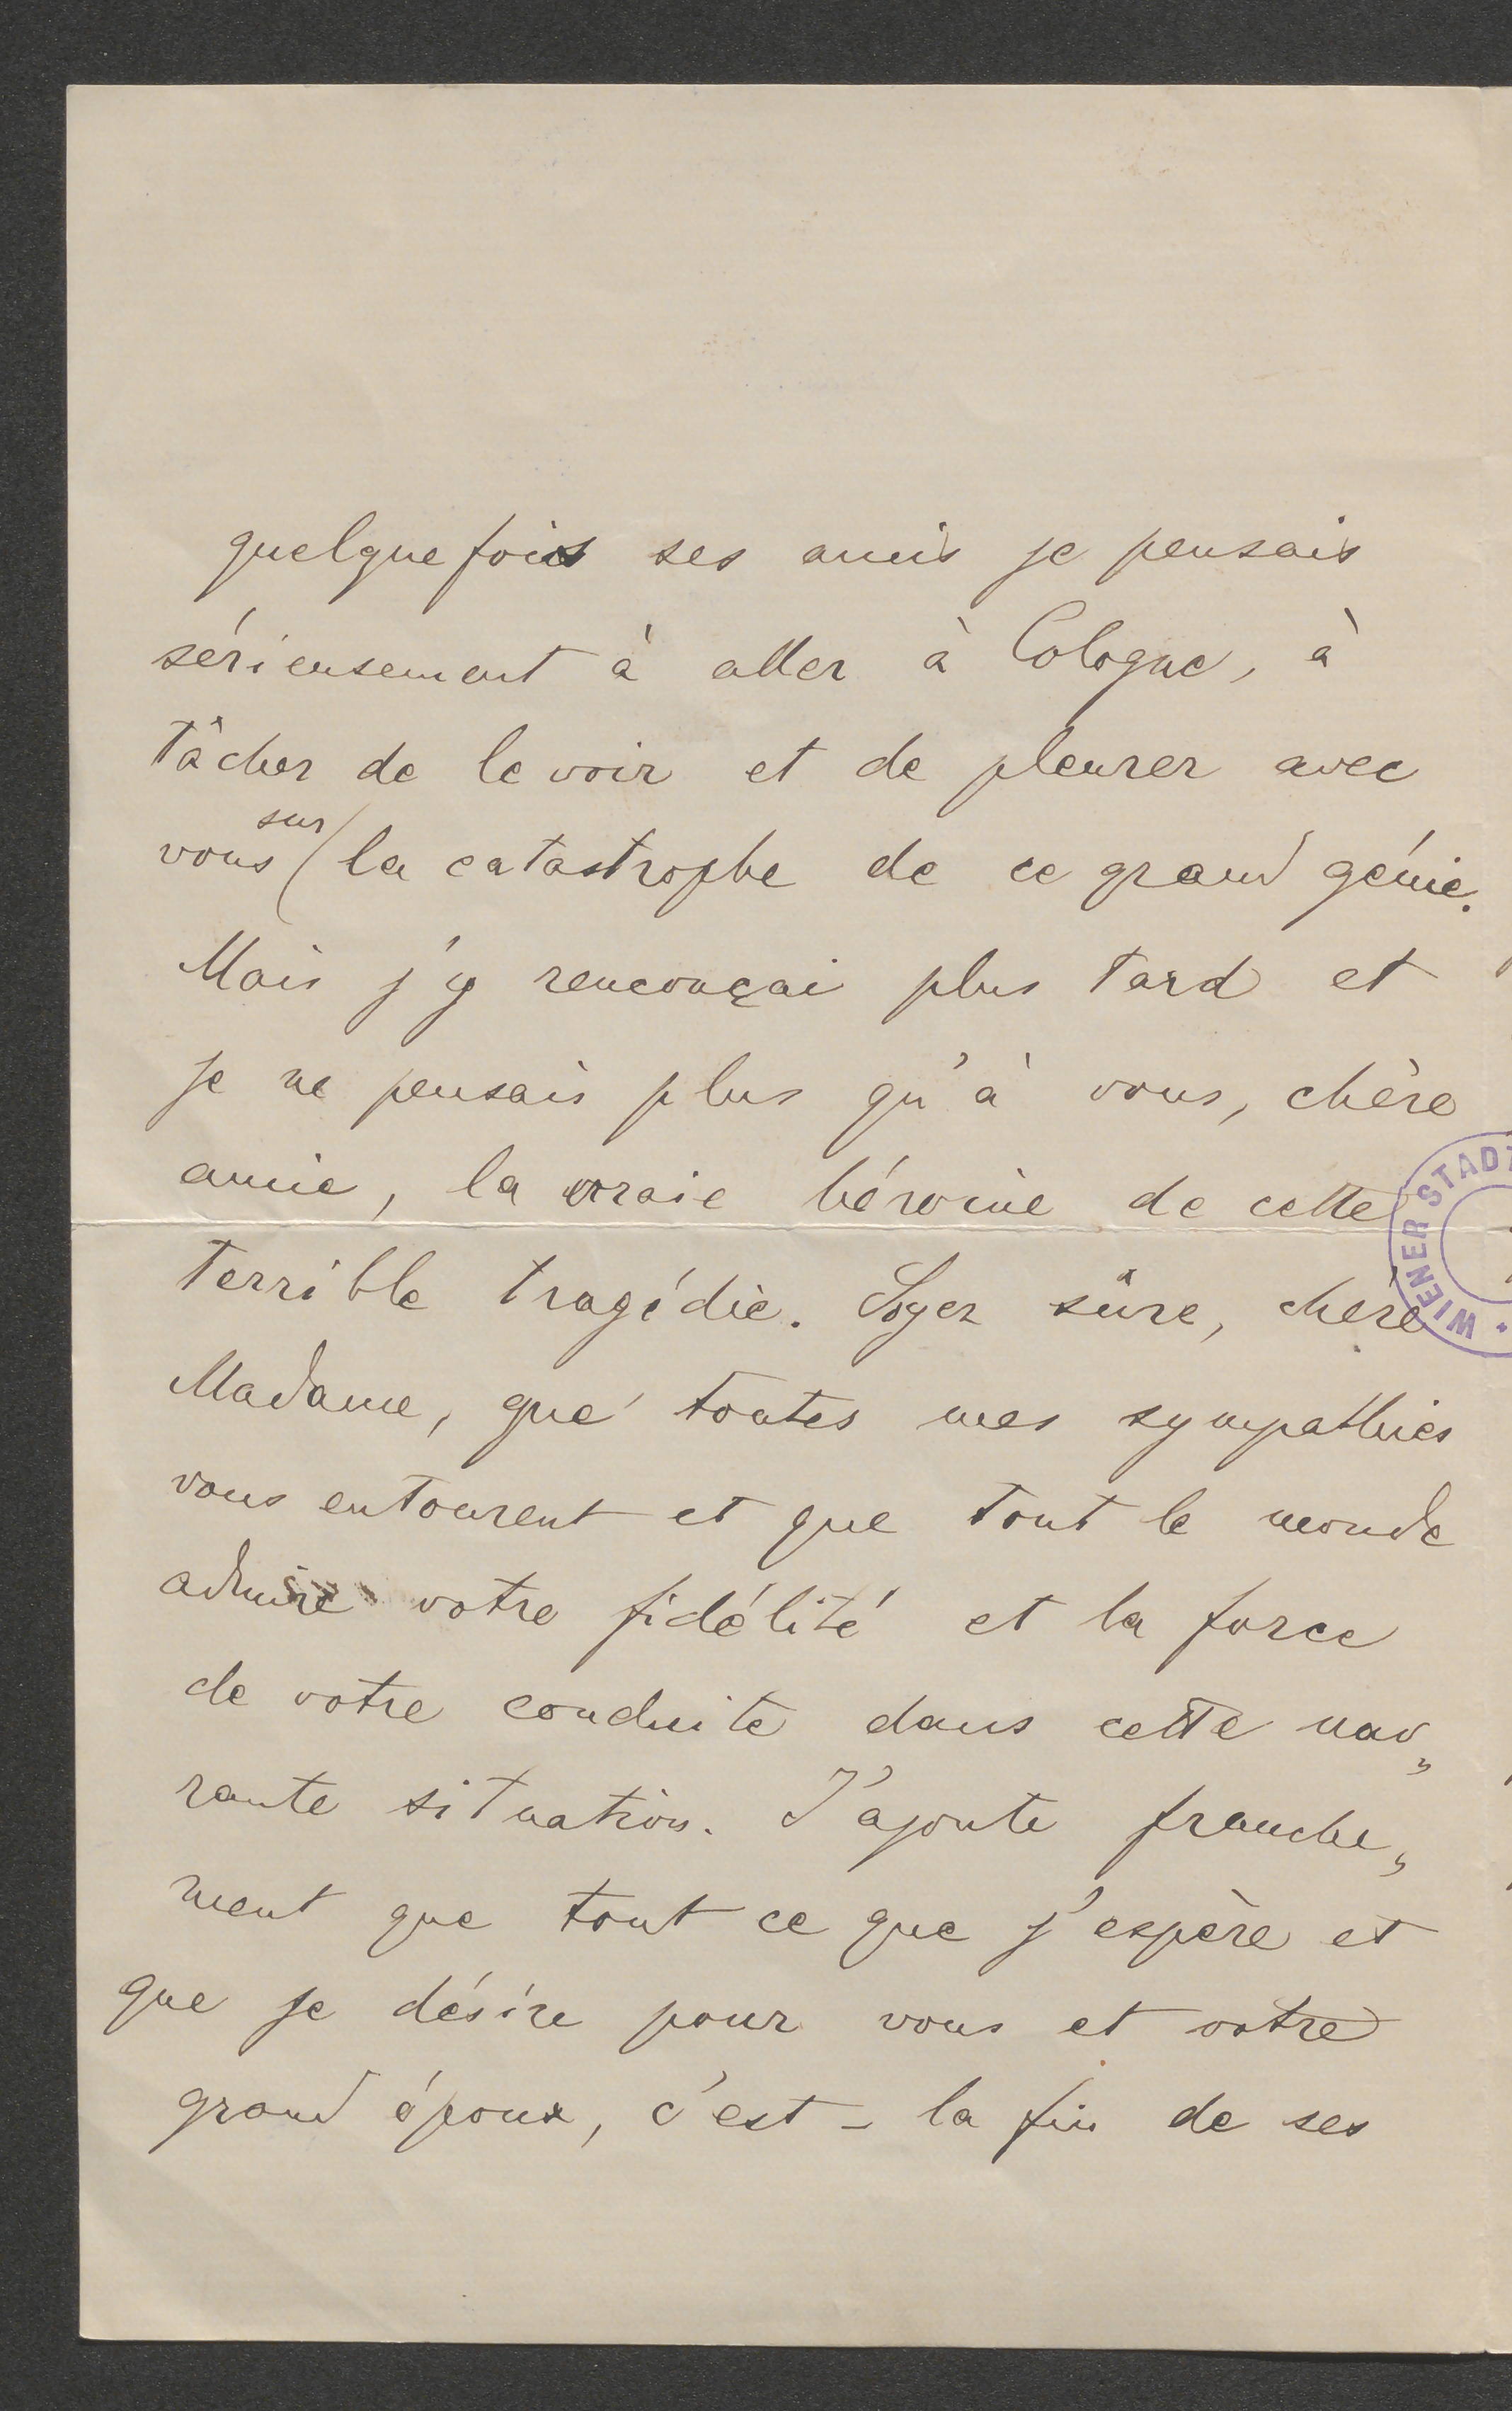 quelque fois ses amis je pensais
sérieusement à aller à Cologne, à
tâcher de le voir et de pleurer avec
vous sur la catastrophe de ce grand génie.
Mais j'y renconçai plus tard et
je ne pensais plus qu'à vous, chère
amie, la vraie héroine de cette
terrible tragédie. Soyez sûre, chère
Madame, que toutes mes sympathies
vous entourent et que tout le monde
admire votre fidélité et la force
de votre conduite dans cette nav„
rante situation. J'ajoute franche„
ment que tout ce que j'espère et
que je désire pour vous et votre
grand époux, c'est – la fin de ses
WIENER STADT